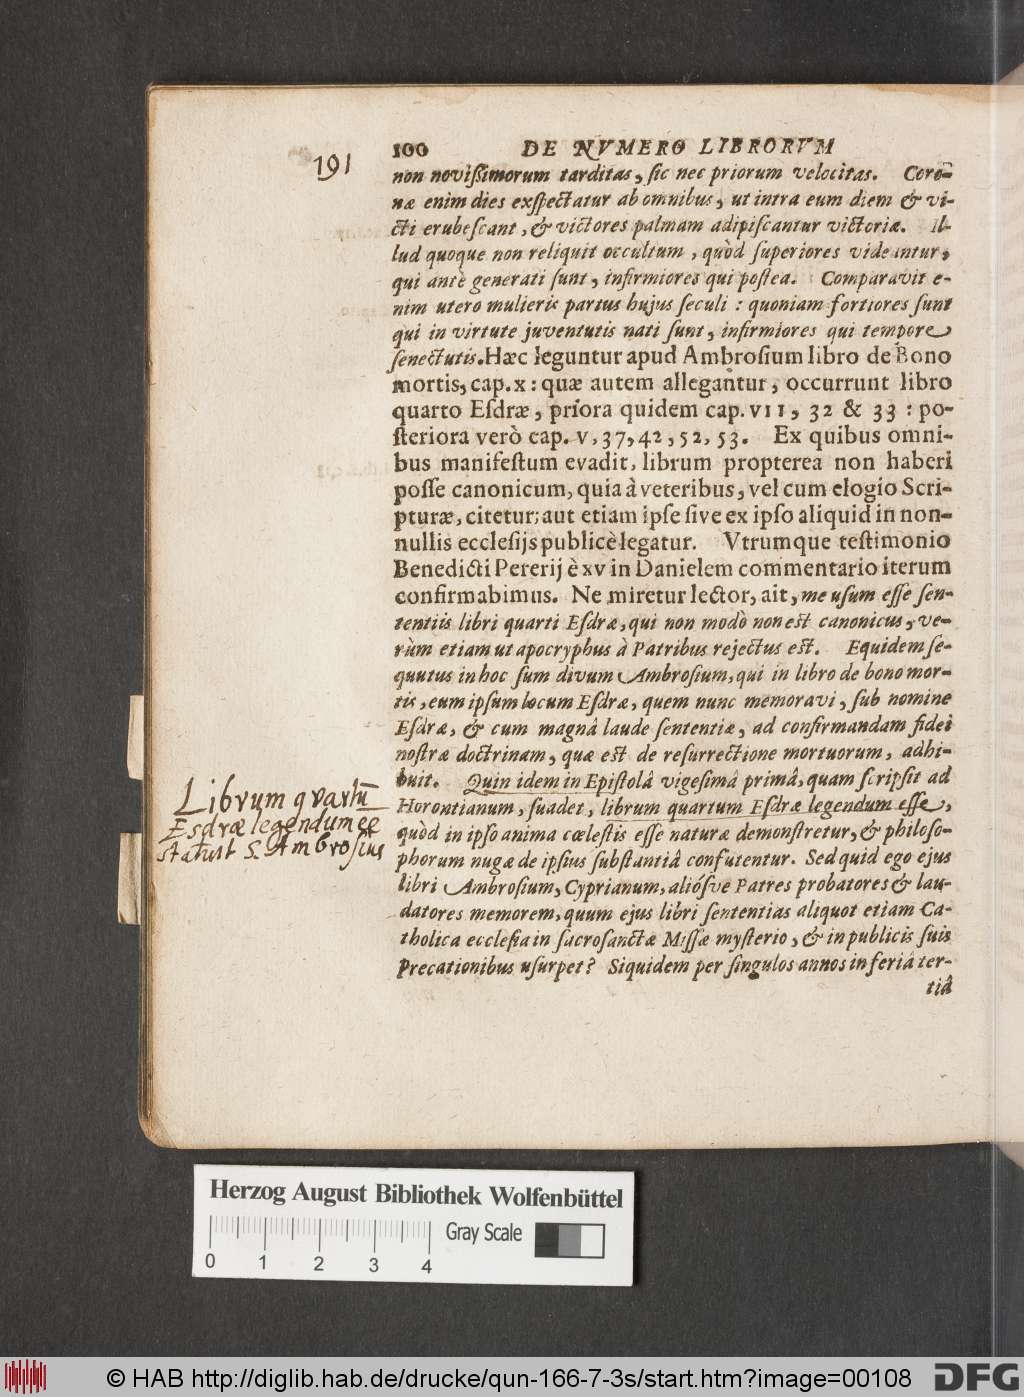 191
100 DE NVMERO LIBRORVM
non novißimorum tarditas, sic nec priorum velocitas. Coro-
næ enim dies exspectatur ab omnibus, ut intra eum diem & vi-
cti erubescant, & victores palmam adipiscantur victoriæ. Il-
lud quoque non reliquit occultum, quòd superiores videantur,
qui antè generati sunt, infirmiores qui postea. Comparavit e-
nim utero mulieris partus hujus seculi: quoniam fortiores sunt
qui in virtute juventutis nati sunt, infirmiores qui tempore
senectutis. Hæc leguntur apud Ambrosium libro de Bono
mortis, cap. x: quæ autem allegantur, occurrunt libro
quarto Esdræ, priora quidem cap. VII, 32 & 33: po-
steriora verò cap. V, 37, 42, 52, 53. Ex quibus omni-
bus manifestum evadit, librum propterea non haberi
posse canonicum, quia à veteribus, vel cum elogio Scri-
pturæ, citetur; aut etiam ipse sive ex ipso aliquid in non-
nullis ecclesijs publicè legatur. Vtrumque testimonio
Benedicti Pererij è xv in Danielem commentario iterum
confirmabimus. Ne miretur lector, ait, me usum esse sen-
tentiis libri quarti Esdræ, qui non modò non est canonicus, ve-
rùm etiam ut apocryphus à Patribus rejectus est. Equidem se-
quutus in hoc sum divum Ambrosium, qui in libro de bono mor-
tis, eum ipsum locum Esdræ, quem nunc memoravi, sub nomine
Esdræ, & cum magnâ laude sententiæ, ad confirmandam fidei
nostræ doctrinam, quæ est de resurrectione mortuorum, adhi-
buit. Quin idem in Epistolâ vigesimâ primâ, quam scripsit ad
Horontianum, suadet, librum quartum Esdræ legendum esse,
quòd in ipso anima cælestis esse naturæ demonstretur, & philoso-
phorum nugæ de ipsius substantiâ confutentur. Sed quid ego ejus
libri Ambrosium, Cyprianum, aliósve Patres probatores & lau-
datores memorem, quum ejus libri sententias aliquot etiam Ca-
tholica ecclesia in sacrosanctæ Missæ mysterio, & in publicis suis
Precationibus usurpet? Siquidem per singulos annos in feriâ ter-
tiâ
Librum qvartū
Esdræ legendum eē
statuit S. Ambrosius
Herzog August Bibliothek Wolfenbüttel
Gray Scale
0 1 2 3 4
© HAB http://diglib.hab.de/drucke/qun-166-7-3s/start.htm?image=00108
DFG